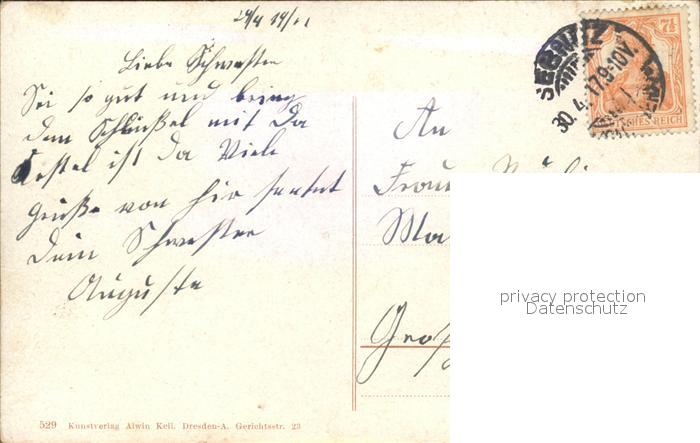 Liebe Schwester
Sei so gut und bring
den Schlüßel mit Da
ist da Viele
Grüße von hir sendet
Dein Schwester
Auguste
SEBNITZ
30.4.17 9-10V.
7½
An
Frau
Ma
Groß
privacy protection
Datenschutz
529 Kunstverlag Alwin Keil. Dresden-A. Gerichtsstr. 23